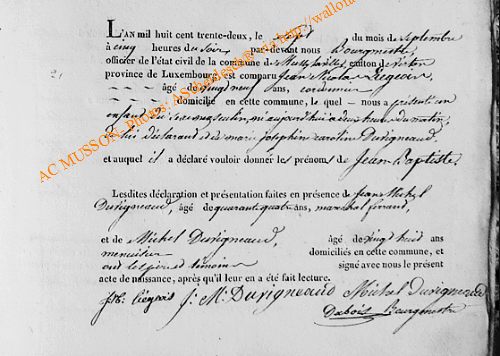 L'AN mil huit cent trente-deux, le sept du mois de septembre
à cinq heures du soir par-devant nous Bourgmestre,
officier de l'état civil de la commune de canton de
province de Luxembourg, est comparu Jean Nicolas
âgé de vingt neuf ans, cordonnier
domicilié en cette commune, le quel nous a présenté un
enfant du sexe masculin, né aujourd'hui à heures du matin,
de lui déclarant et de marie josephine caroline Duvigneaud
et auquel il a déclaré vouloir donner les prénoms de Jean Baptiste
Lesdites déclaration et présentation faites en présence de Jean Michel
Duvigneaud, âgé de quarante quatre ans, marechal ferrant,
et de Michel Duvigneaud, âgé de vingt huit ans
menuisier domiciliés en cette commune, et
signé avec nous le présent
acte de naissance, après qu'il leur en a été fait lecture.
J. M. Duvigneaud Michel Duvigneaud
Dubois Bourgmestre
21
AC MUSSON - Photos: